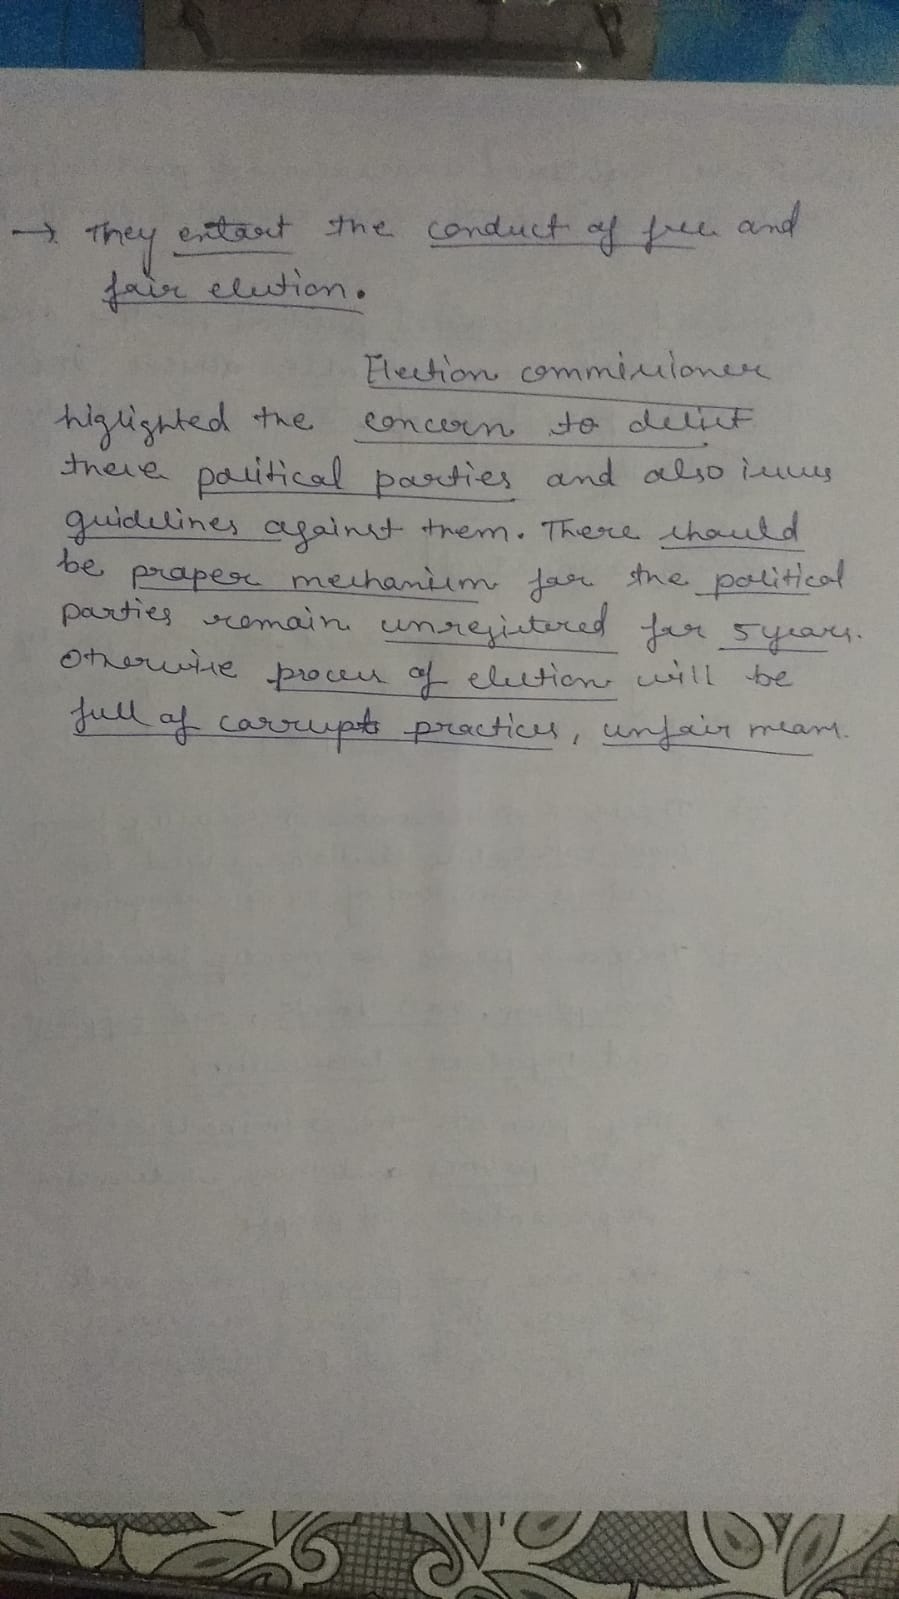 → They extort the conduct of free and
fair election.
Election commissioner
higlighted the concern to delist
these political parties and also issues
guidelines against them. There should
be proper mechanism for the political
parties remain unregistered for 5 years.
Otherwise process of election will be
full of corrupt practices, unfair means.